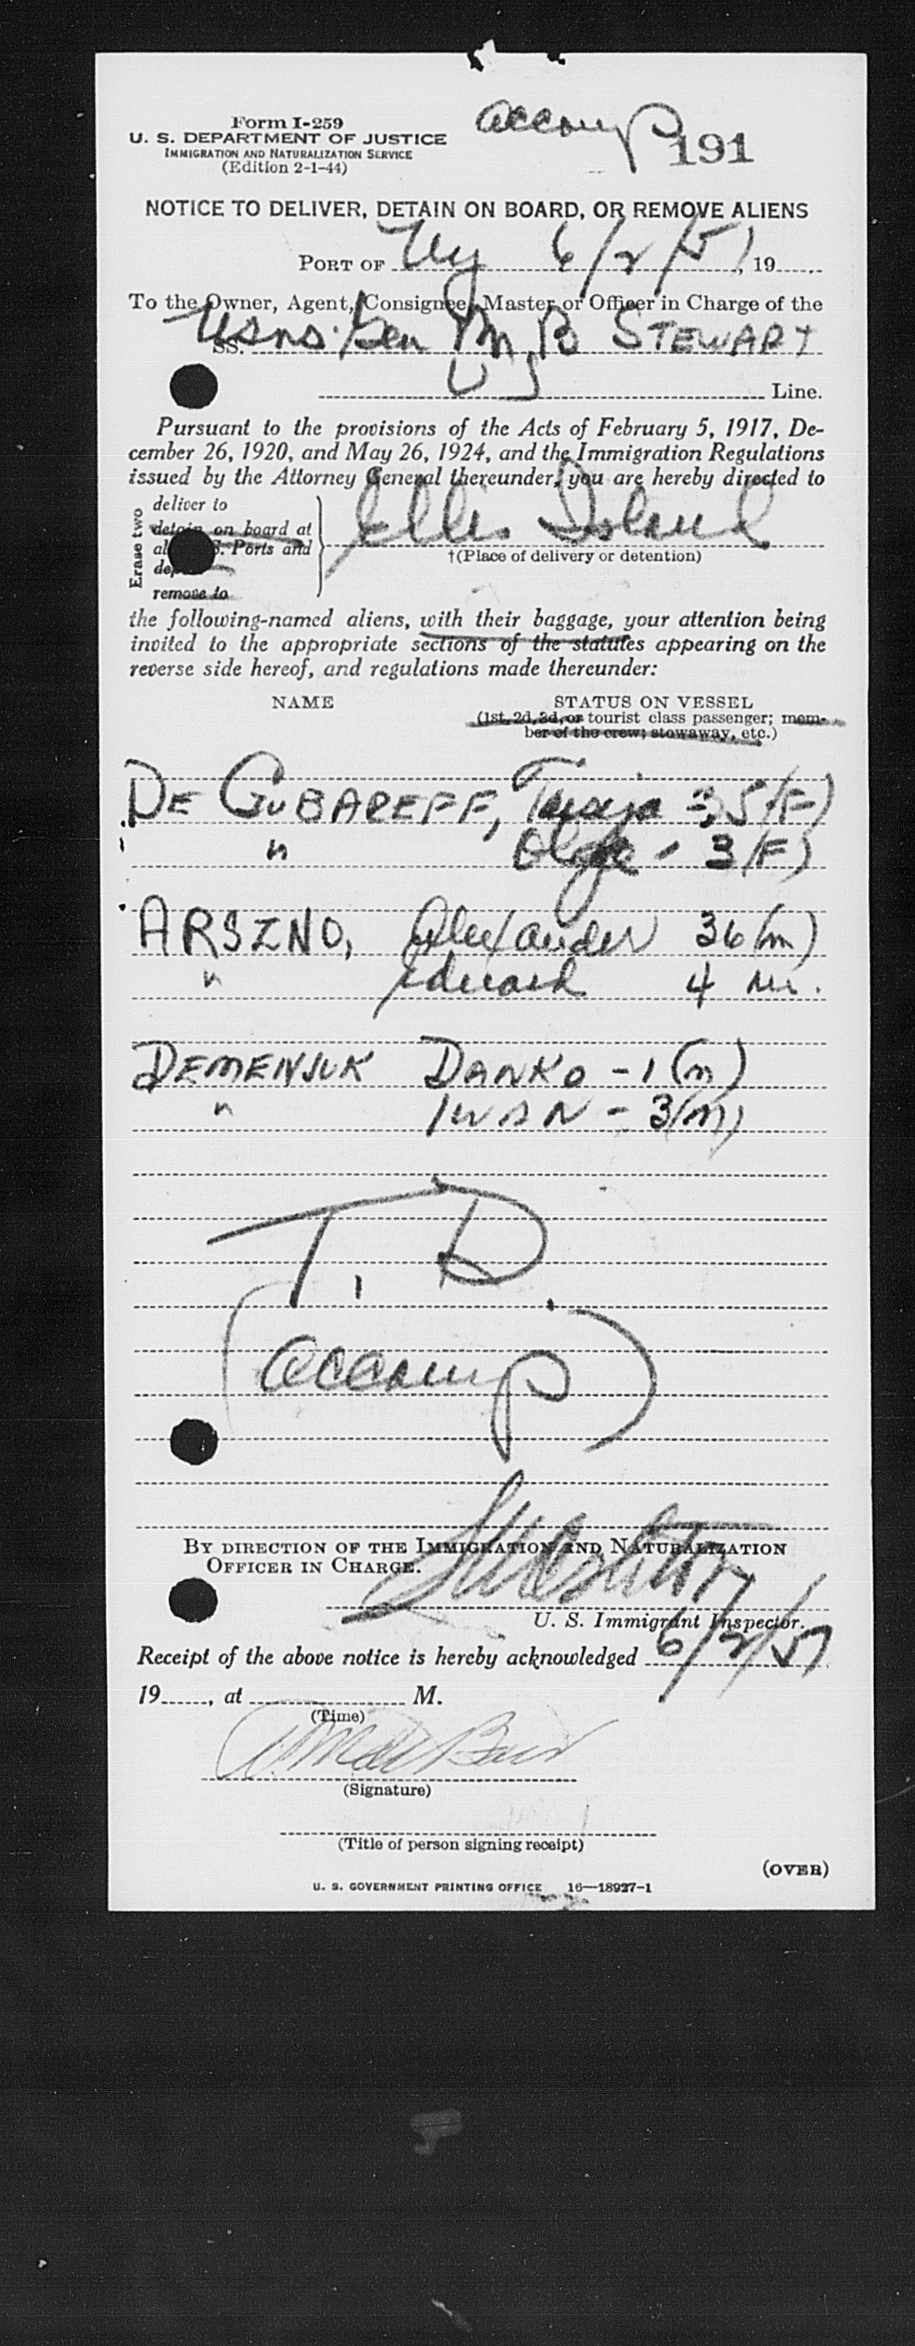 Form I-259
U. S. DEPARTMENT OF JUSTICE
IMMIGRATION AND NATURALIZATION SERVICE
(Edition 2-1-44)
accomp
191
NOTICE TO DELIVER, DETAIN ON BOARD, OR REMOVE ALIENS
PORT OF NY 6/2/51, 19
To the Owner, Agent, Consignee, Master or Officer in Charge of the
SS. USNS. Gen M B STEWART
US Line.
Pursuant to the provisions of the Acts of February 5, 1917, De-
cember 26, 1920, and May 26, 1924, and the Immigration Regulations
issued by the Attorney General thereunder, you are hereby directed to
Erase two
deliver to
detain on board at
S. Ports and
remove to
Ellis Island
†(Place of delivery or detention)
the following-named aliens, with their baggage, your attention being
invited to the appropriate sections of the statutes appearing on the
reverse side hereof, and regulations made thereunder:
NAME STATUS ON VESSEL
(1st, 2d, 3d, or tourist class passenger; mem-
ber of the crew; stowaway, etc.)
DE GUBAREFF, 35 (F)
" Olga - 3 (F)
ARSZNO, Alexander 36 (m)
" Eduard 4
DEMENJUK DANKO - 1 (m)
" IWAN - 3 (m)
T. D.
(accomp)
BY DIRECTION OF THE IMMIGRATION AND NATURALIZATION
OFFICER IN CHARGE.
U. S. Immigrant Inspector.
Receipt of the above notice is hereby acknowledged 6/2/51
19, at M.
(Time)
(Signature)
(Title of person signing receipt)
(OVER)
U. S. GOVERNMENT PRINTING OFFICE 16—18927-1